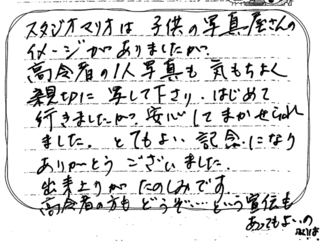 スタジオマリオは 子供の写真屋さんの
イメージがありましたが、
高令者の1人写真も 気もちよく
親切に 写して下さり、はじめて
行きましたが、安心してまかせられ
ました。とてもよい 記念になり
ありがとう ございました。
出来上りが たのしみです。
高令者の方も どうぞ…という宣伝も
あってもよいの
では